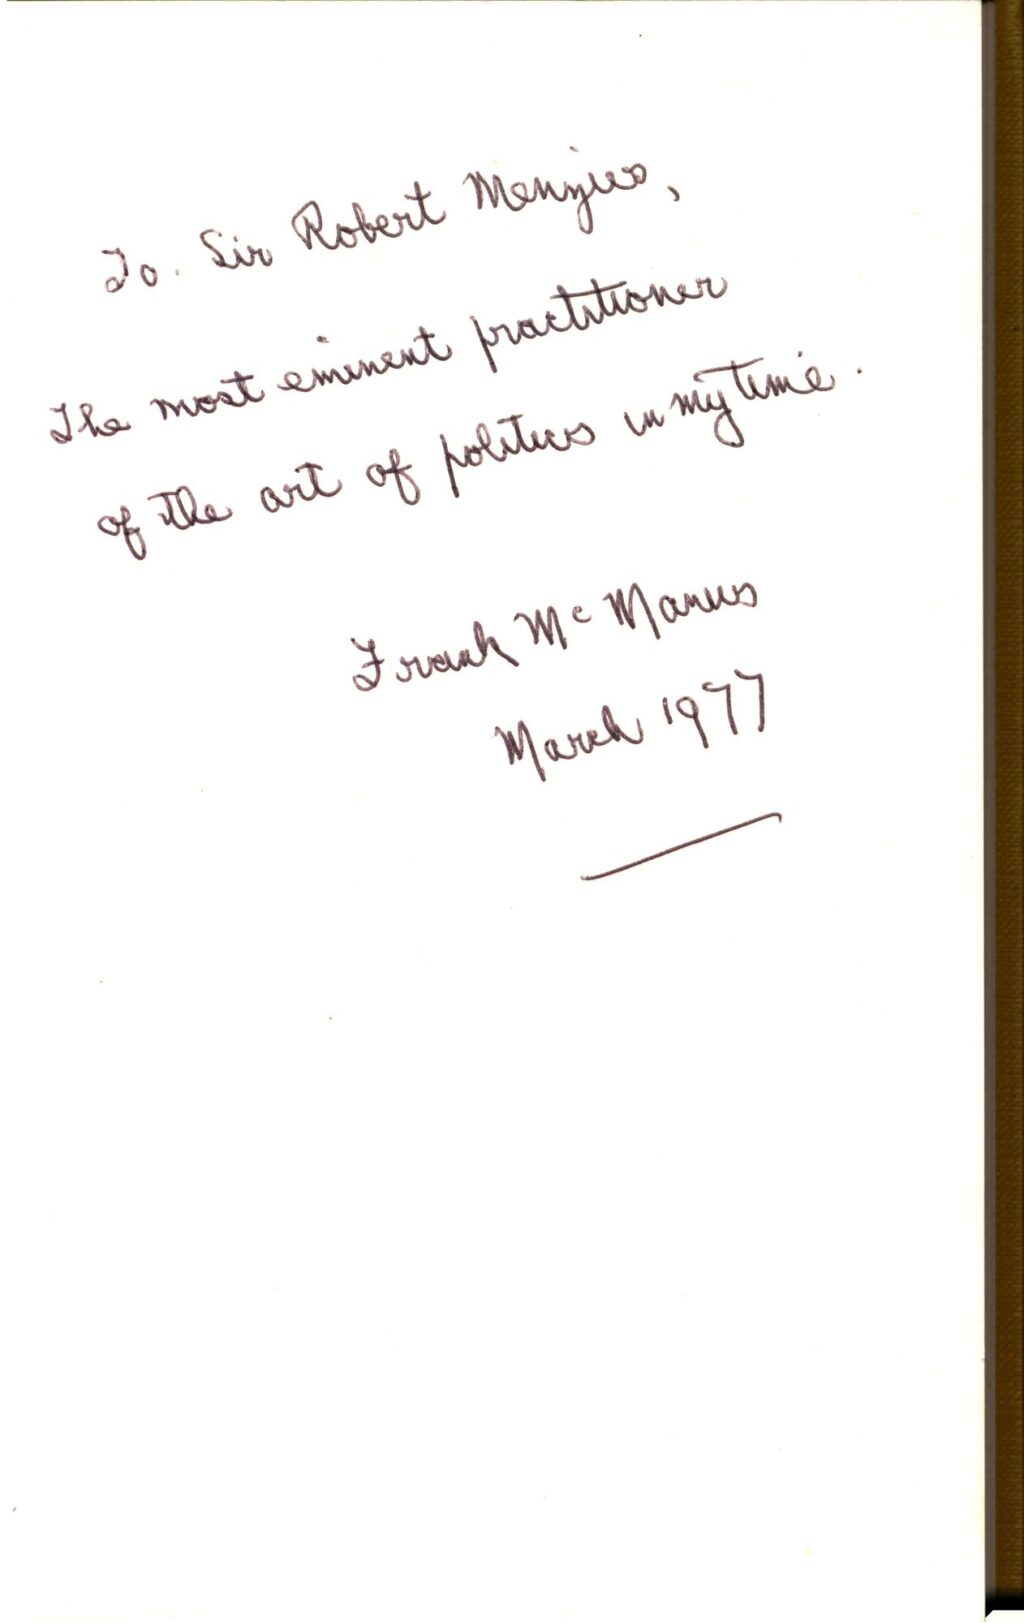 To. Sir Robert Menzies,
The most eminent practitioner
of the art of politics in my time.
Frank Mc Manus
March 1977